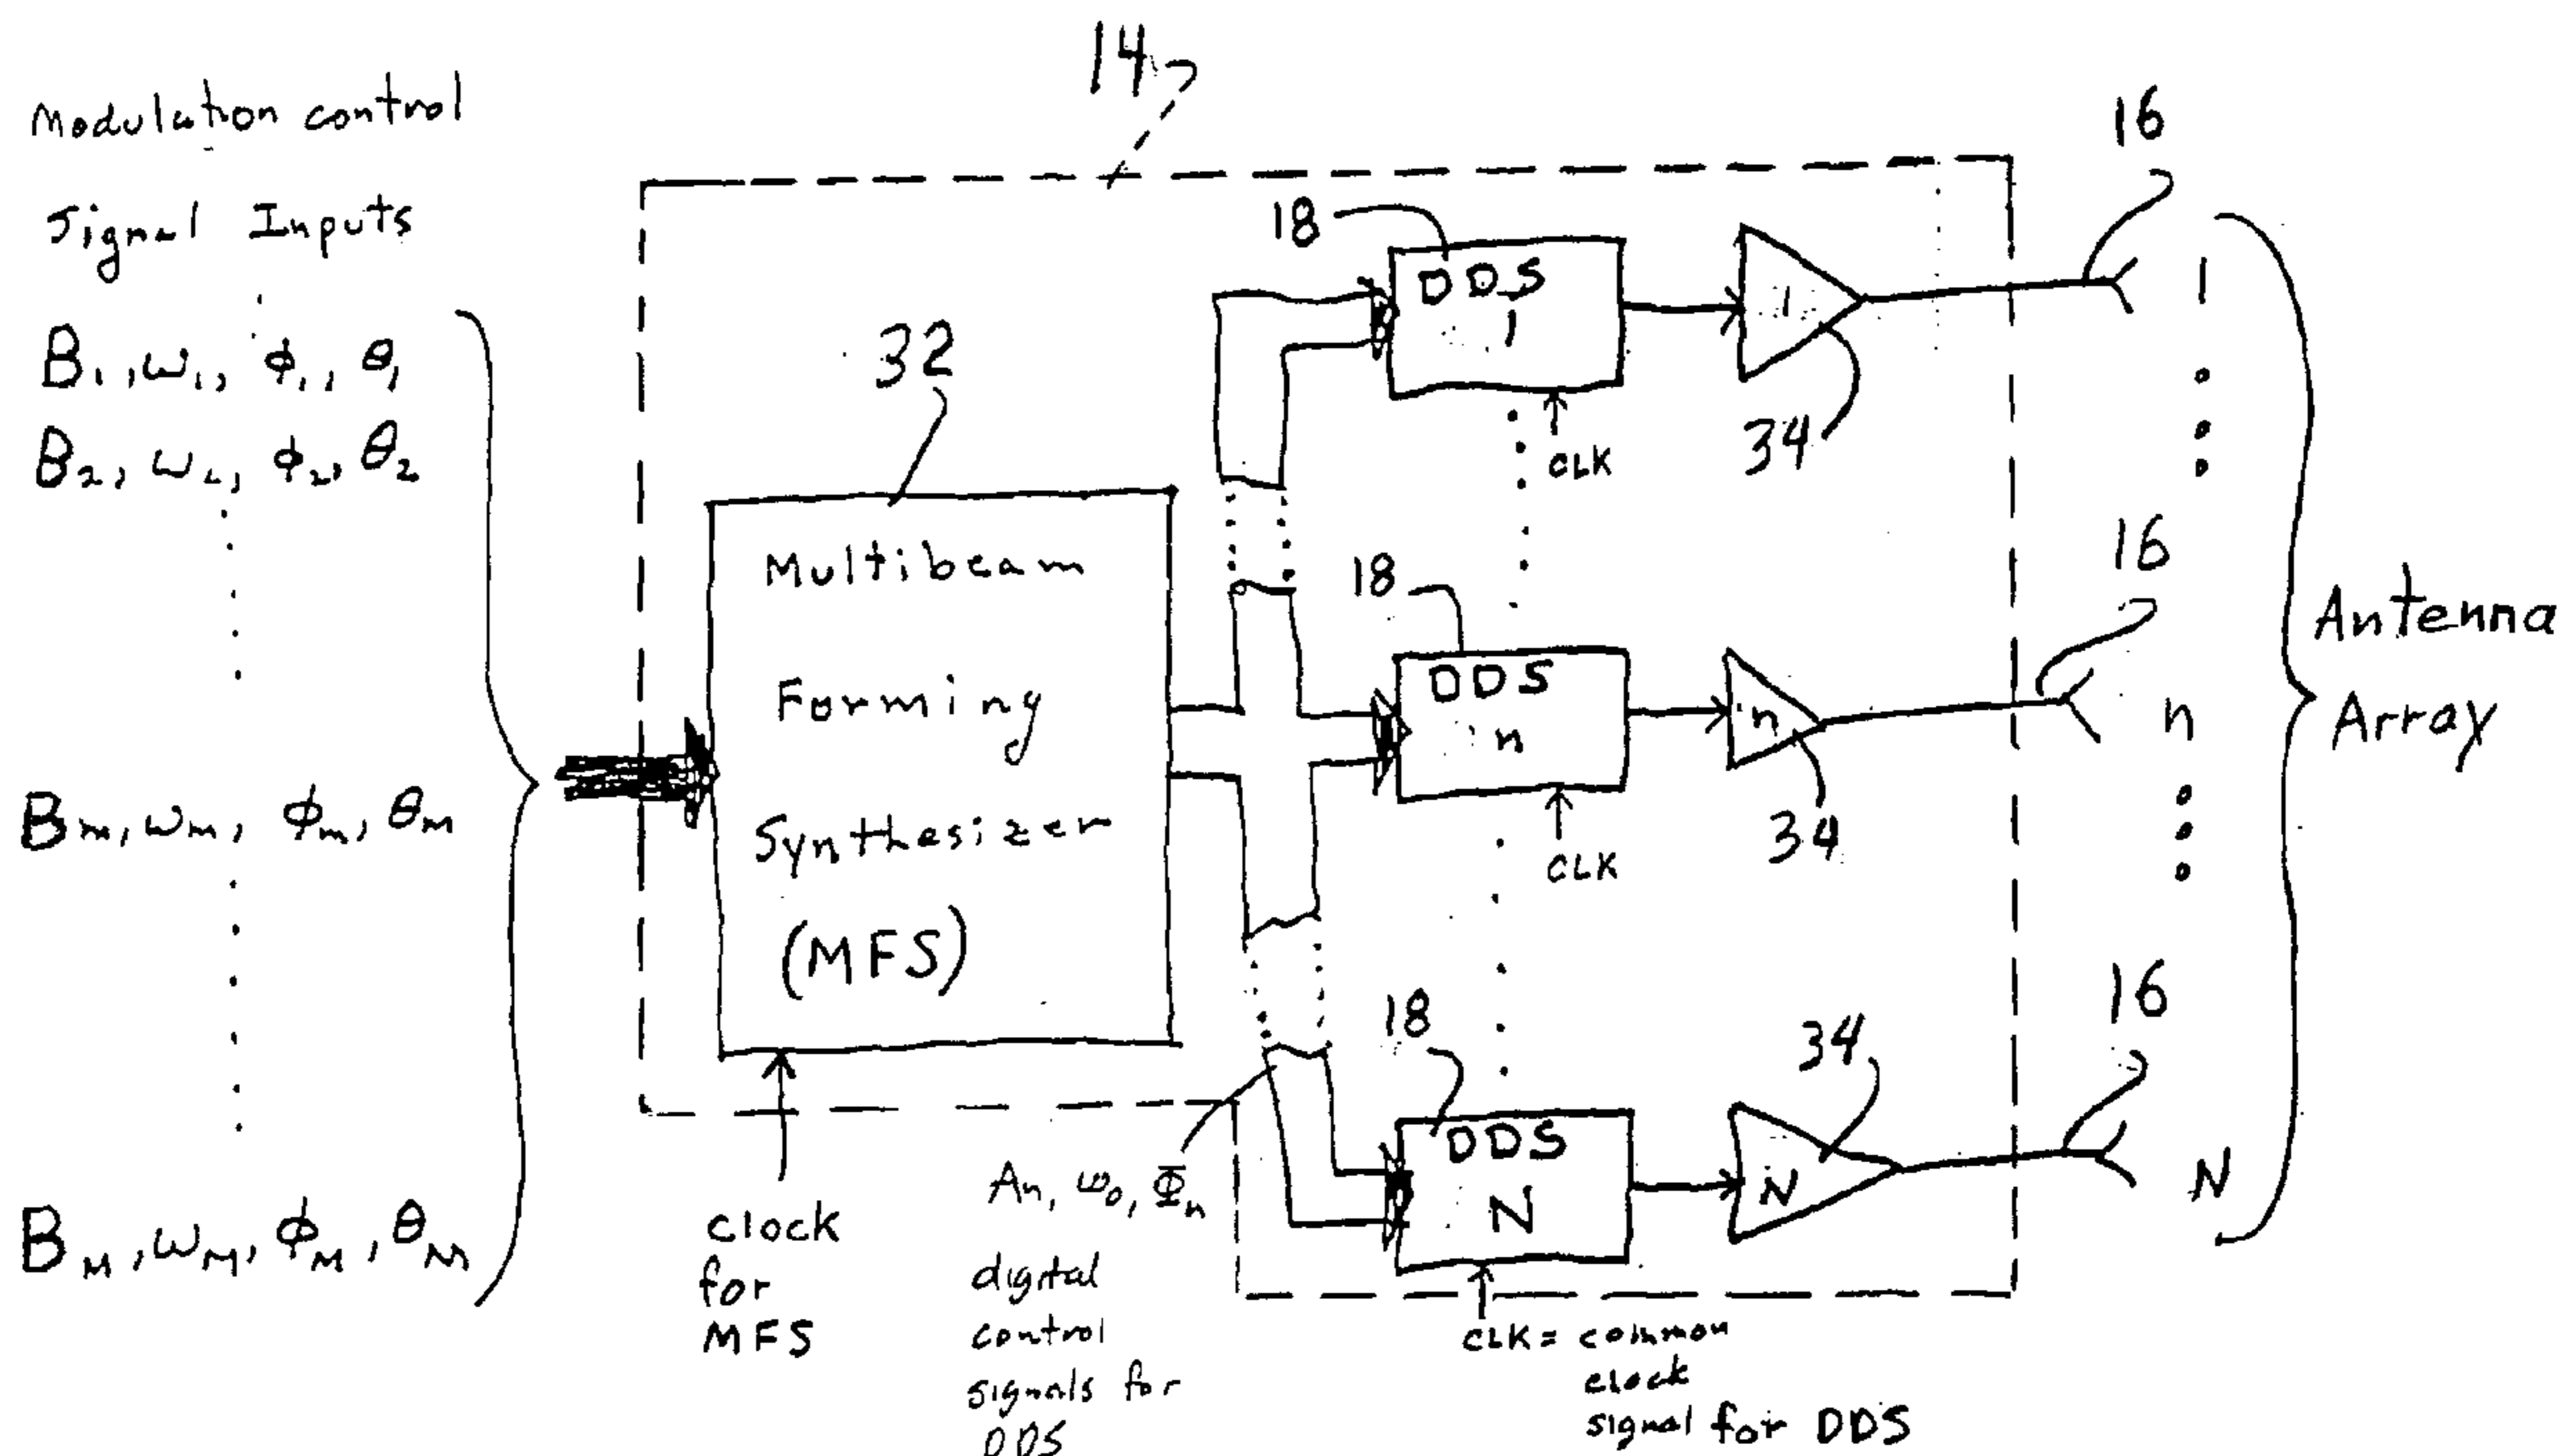 14
Modulation control
Signal Inputs
B₁, ω₁, ϕ₁, θ₁
B₂, ω₂, ϕ₂, θ₂
Bm, ωm, ϕm, θm
B_M, ω_M, ϕ_M, θ_M
32
Multibeam
Forming
Synthesizer
(MFS)
clock
for
MFS
An, ω₀, Φn
digital
control
signals for
DDS
18
DDS
1
CLK
1
34
16
1
18
DDS
n
CLK
n
34
16
n
18
DDS
N
34
N
16
N
CLK = common
clock
signal for DDS
Antenna
Array